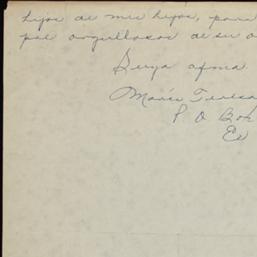 hijos de mis hijos, para
orgullosos de su
Suya afma.
Maria Teresa
P O Box